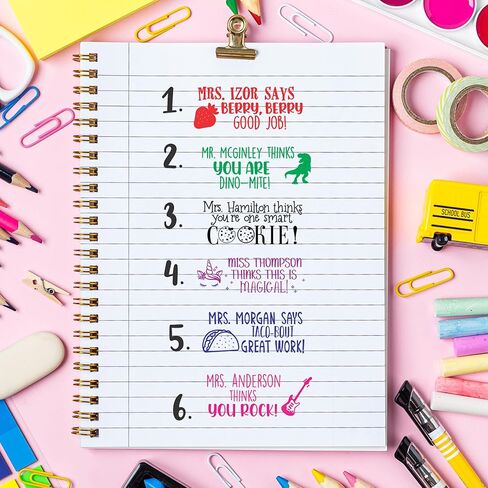 1. MRS. IZOR SAYS
BERRY, BERRY
GOOD JOB!
2. MR. MCGINLEY THINKS
YOU ARE
DINO-MITE!
3. Mrs. Hamilton thinks
you're one smart
COOKIE!
4. MISS THOMPSON
THINKS THIS IS
MAGICAL!
5. MRS. MORGAN SAYS
TACO-BOUT
GREAT WORK!
6. MRS. ANDERSON
THINKS
YOU ROCK!
SCHOOL BUS